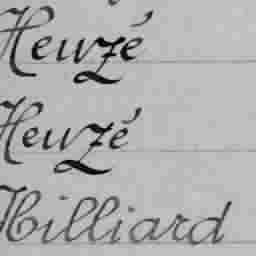 Heuzé
Heuzé
Hilliard